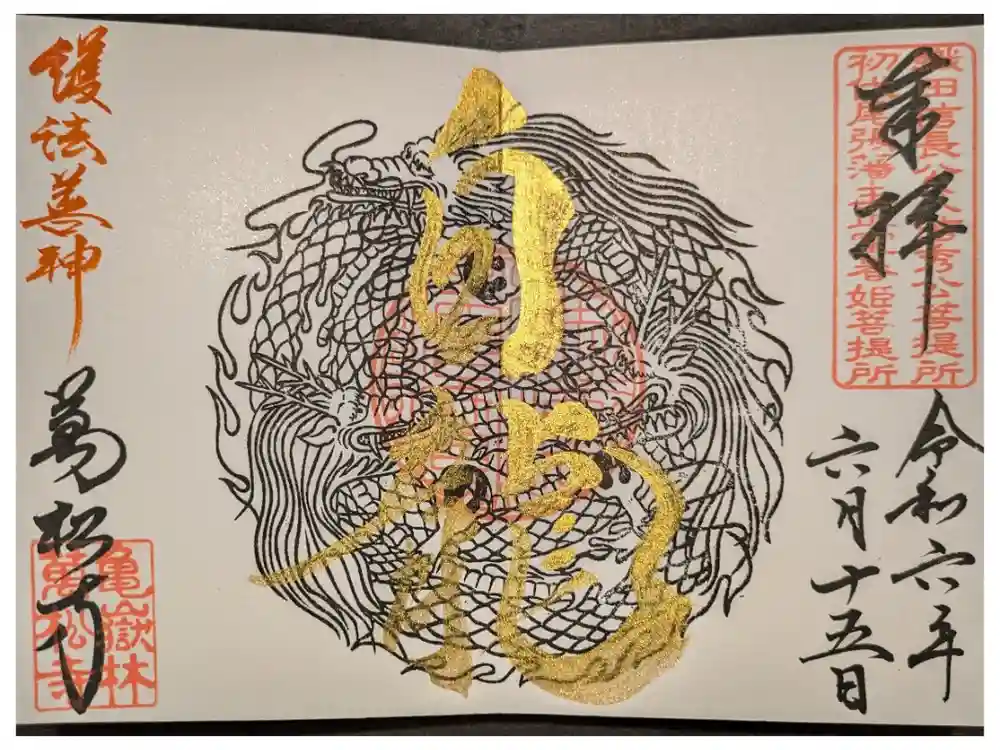 奉拝
織田信長公父信秀公菩提所
初代尾張藩主正室春姫菩提所
令和六年
六月十五日
白龍
護法善神
萬松寺
亀嶽林
萬松寺